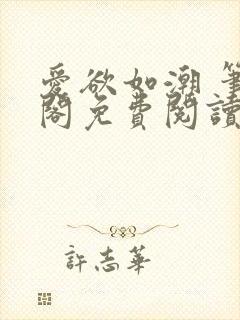 愛欲如潮 筆
閣免費閱讀
許志華